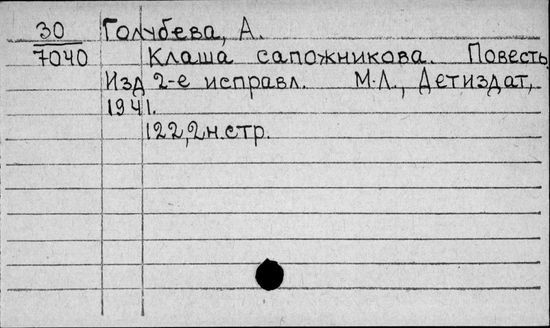 30 Голубева, А.
7040 Клаша сапожникова. Повесть
Изд 2-е исправл. М-Л., Детиздат,
1941.
122,2н.стр.